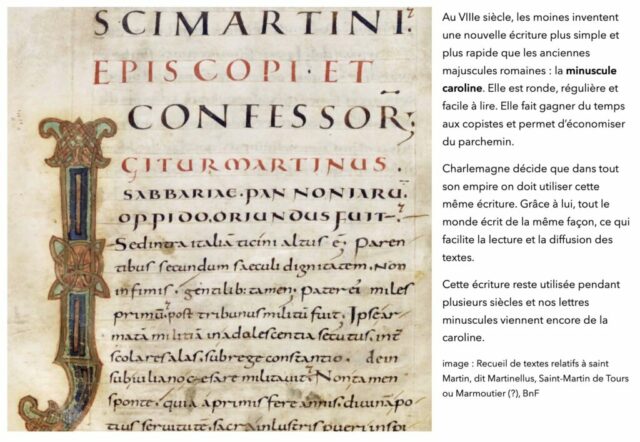 SCI MARTINI.
EPISCOPI · ET
CONFESSOR;
IGITUR MARTINUS.
SABBARIAE · PANNONIARU
OPPIDO, ORIUNDUS FUIT
Sed intra italiā ticini altus ē; Paren
tibus secundum saeculi dignitatem, Non
infimis, gentilib; tamen; Pater ei miles
primū, post tribunus militū fuit, Ipse ar
matā militiā in adolescentia secutus, int
scolares alas, sub rege constantio, dein
sub iuliano cesare militauit; Non tamen
sponte, quia a primis fere annis, diuinā po
tius seruitutē, sacra inlustris pueri inspi
Au VIIIe siècle, les moines inventent
une nouvelle écriture plus simple et
plus rapide que les anciennes
majuscules romaines : la minuscule
caroline. Elle est ronde, régulière et
facile à lire. Elle fait gagner du temps
aux copistes et permet d’économiser
du parchemin.
Charlemagne décide que dans tout
son empire on doit utiliser cette
même écriture. Grâce à lui, tout le
monde écrit de la même façon, ce qui
facilite la lecture et la diffusion des
textes.
Cette écriture reste utilisée pendant
plusieurs siècles et nos lettres
minuscules viennent encore de la
caroline.
image : Recueil de textes relatifs à saint
Martin, dit Martinellus, Saint-Martin de Tours
ou Marmoutier (?), BnF